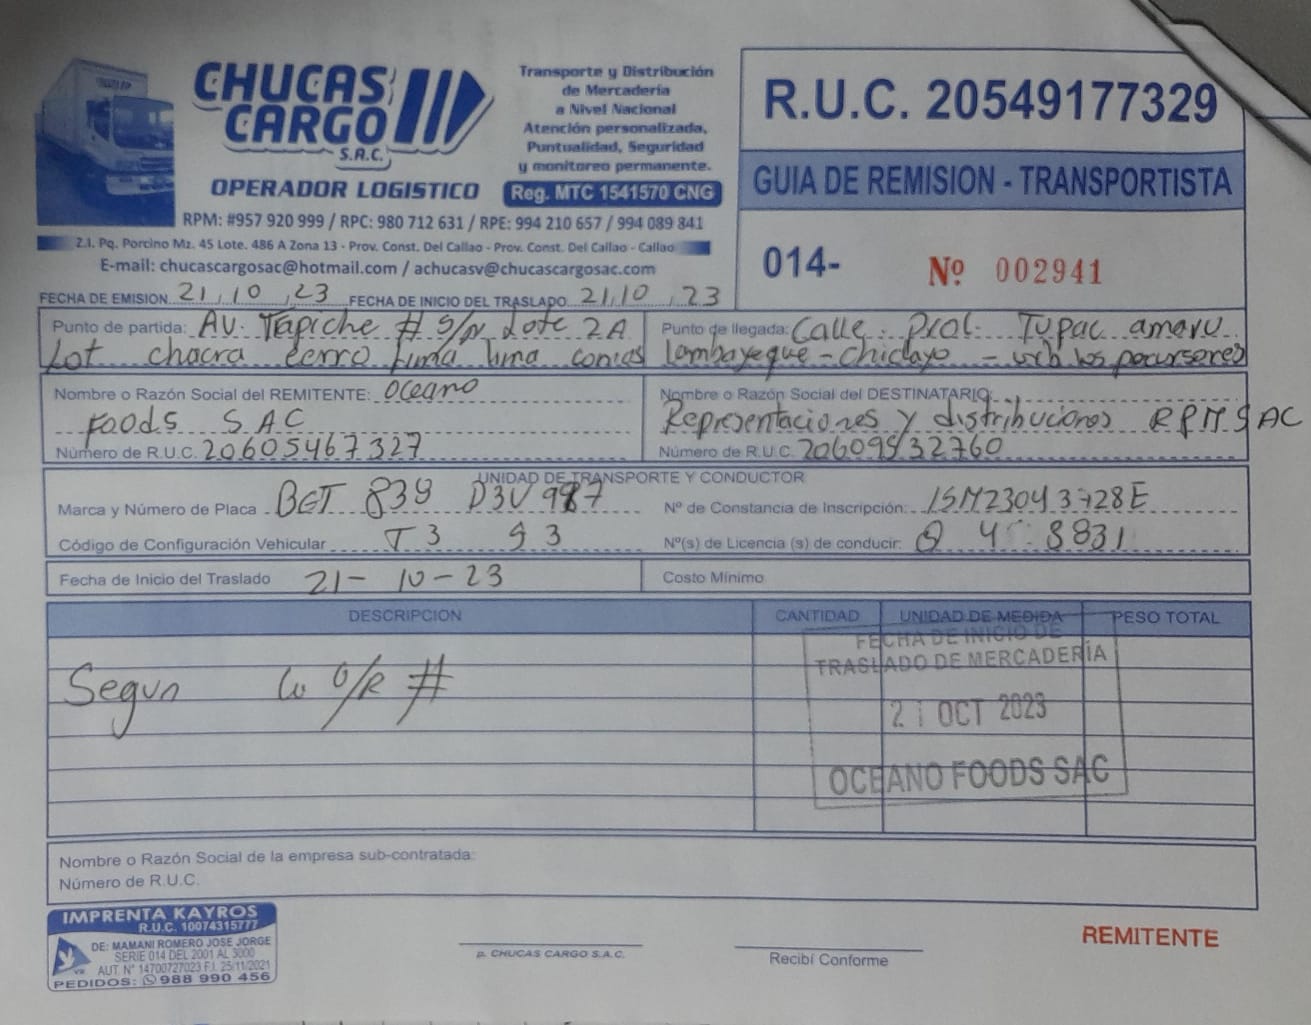 CHUCAS
CARGO
S.A.C.
OPERADOR LOGISTICO
Transporte y Distribución
de Mercadería
a Nivel Nacional
Atención personalizada,
Puntualidad, Seguridad
y monitoreo permanente.
Reg. MTC 1541570 CNG
RPM: #957 920 999 / RPC: 980 712 631 / RPE: 994 210 657 / 994 089 841
Z.I. Pq. Porcino Mz. 45 Lote. 486 A Zona 13 - Prov. Const. Del Callao - Prov. Const. Del Callao - Callao
E-mail: chucascargosac@hotmail.com / achucasv@chucascargosac.com
R.U.C. 20549177329
GUIA DE REMISION - TRANSPORTISTA
014- Nº 002941
FECHA DE EMISION 21, 10, 23 FECHA DE INICIO DEL TRASLADO 21, 10, 23
Punto de partida: AV. Trapiche # S/N Lote 2A
Lot chacra cerro Lima Lima comas
Punto de llegada: Calle. Prol. Tupac amaru
Lambayeque - Chiclayo - urb los
Nombre o Razón Social del REMITENTE: Oceano
Foods SAC
Número de R.U.C. 20605467327
Nombre o Razón Social del DESTINATARIO:
Representaciones y distribuciones RPM SAC
Número de R.U.C. 20609532760
UNIDAD DE TRANSPORTE Y CONDUCTOR
Marca y Número de Placa BET 839 D3V 987
Nº de Constancia de Inscripción: 15M23043728E
Código de Configuración Vehicular T3 S3
Nº(s) de Licencia (s) de conducir:
Fecha de Inicio del Traslado 21- 10 - 23
Costo Mínimo
DESCRIPCION CANTIDAD UNIDAD DE MEDIDA PESO TOTAL
Segun G/R #
FECHA DE INICIO DE
TRASLADO DE MERCADERÍA
21 OCT 2023
OCEANO FOODS SAC
Nombre o Razón Social de la empresa sub-contratada:
Número de R.U.C.
IMPRENTA KAYROS
R.U.C. 10074315777
DE: MAMANI ROMERO JOSE JORGE
SERIE 014 DEL 2001 AL 3000
AUT. N° 14700727023 F.I. 25/11/2021
PEDIDOS: 988 990 456
p. CHUCAS CARGO S.A.C.
Recibí Conforme
REMITENTE